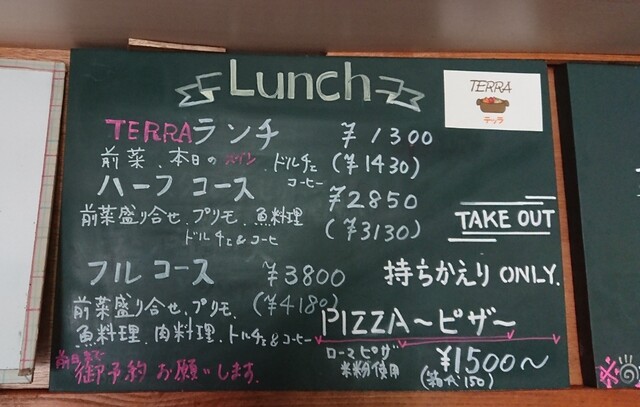 Lunch
TERRA
テッラ
TERRAランチ ¥1300
前菜、本日のメイン、ドルチェ (¥1430)
コーヒー
ハーフコース ¥2850
前菜盛り合せ、プリモ、魚料理 (¥3130)
ドルチェ&コーヒ
TAKE OUT
フルコース ¥3800
持ちかえり ONLY.
前菜盛り合せ、プリモ、 (¥4180)
魚料理、肉料理、ドルチェ&コーヒー
PIZZA〜ピザ〜
前日まで
御予約お願いします.
ローマピザ
米粉使用
¥1500〜
(箱代150)